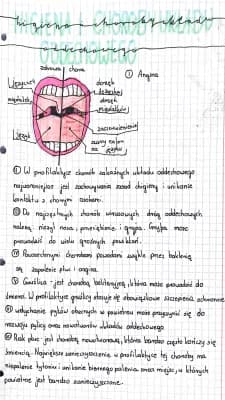 HIGIENA I CHOROBY UKŁADU
ODDECHOWEGO
zdrowe chore
① Angina
język
① W profilaktyce chorób zakaźnych układu oddechowego
najważniejsze jest zachowywanie zasad higieny i unikanie
kontaktu z chorymi osobami.
② Do najczęstszych chorób wirusowych dróg oddechowych
należą nieżyt nosa, przeziębienie i grypa. Grypa może
prowadzić do wielu groźnych powikłań.
Powszechnymi chorobami powodami zwykle przez bakterię
są zapalenie płuc i angina.
Gruźlica - jest chorobą bakteryjną, która może prowadzić do
śmierci. W profilaktyce gruźlicy stosuje się obowiązkowe szczepienia ochronne
wdychanie pyłów obecnych w powietrzu może przyczynić się do
rozwoju pylicy oraz nowotworów układu oddechowego
Rak płuc - jest chorobą nowotworową, która bardzo często kończy się
śmiercią. Największe w profilaktyce tej choroby ma
niepalenie tytoniu i unikanie biernego palenia oraz miejsc, w których
powietrze jest bardzo zanieczyszczone.